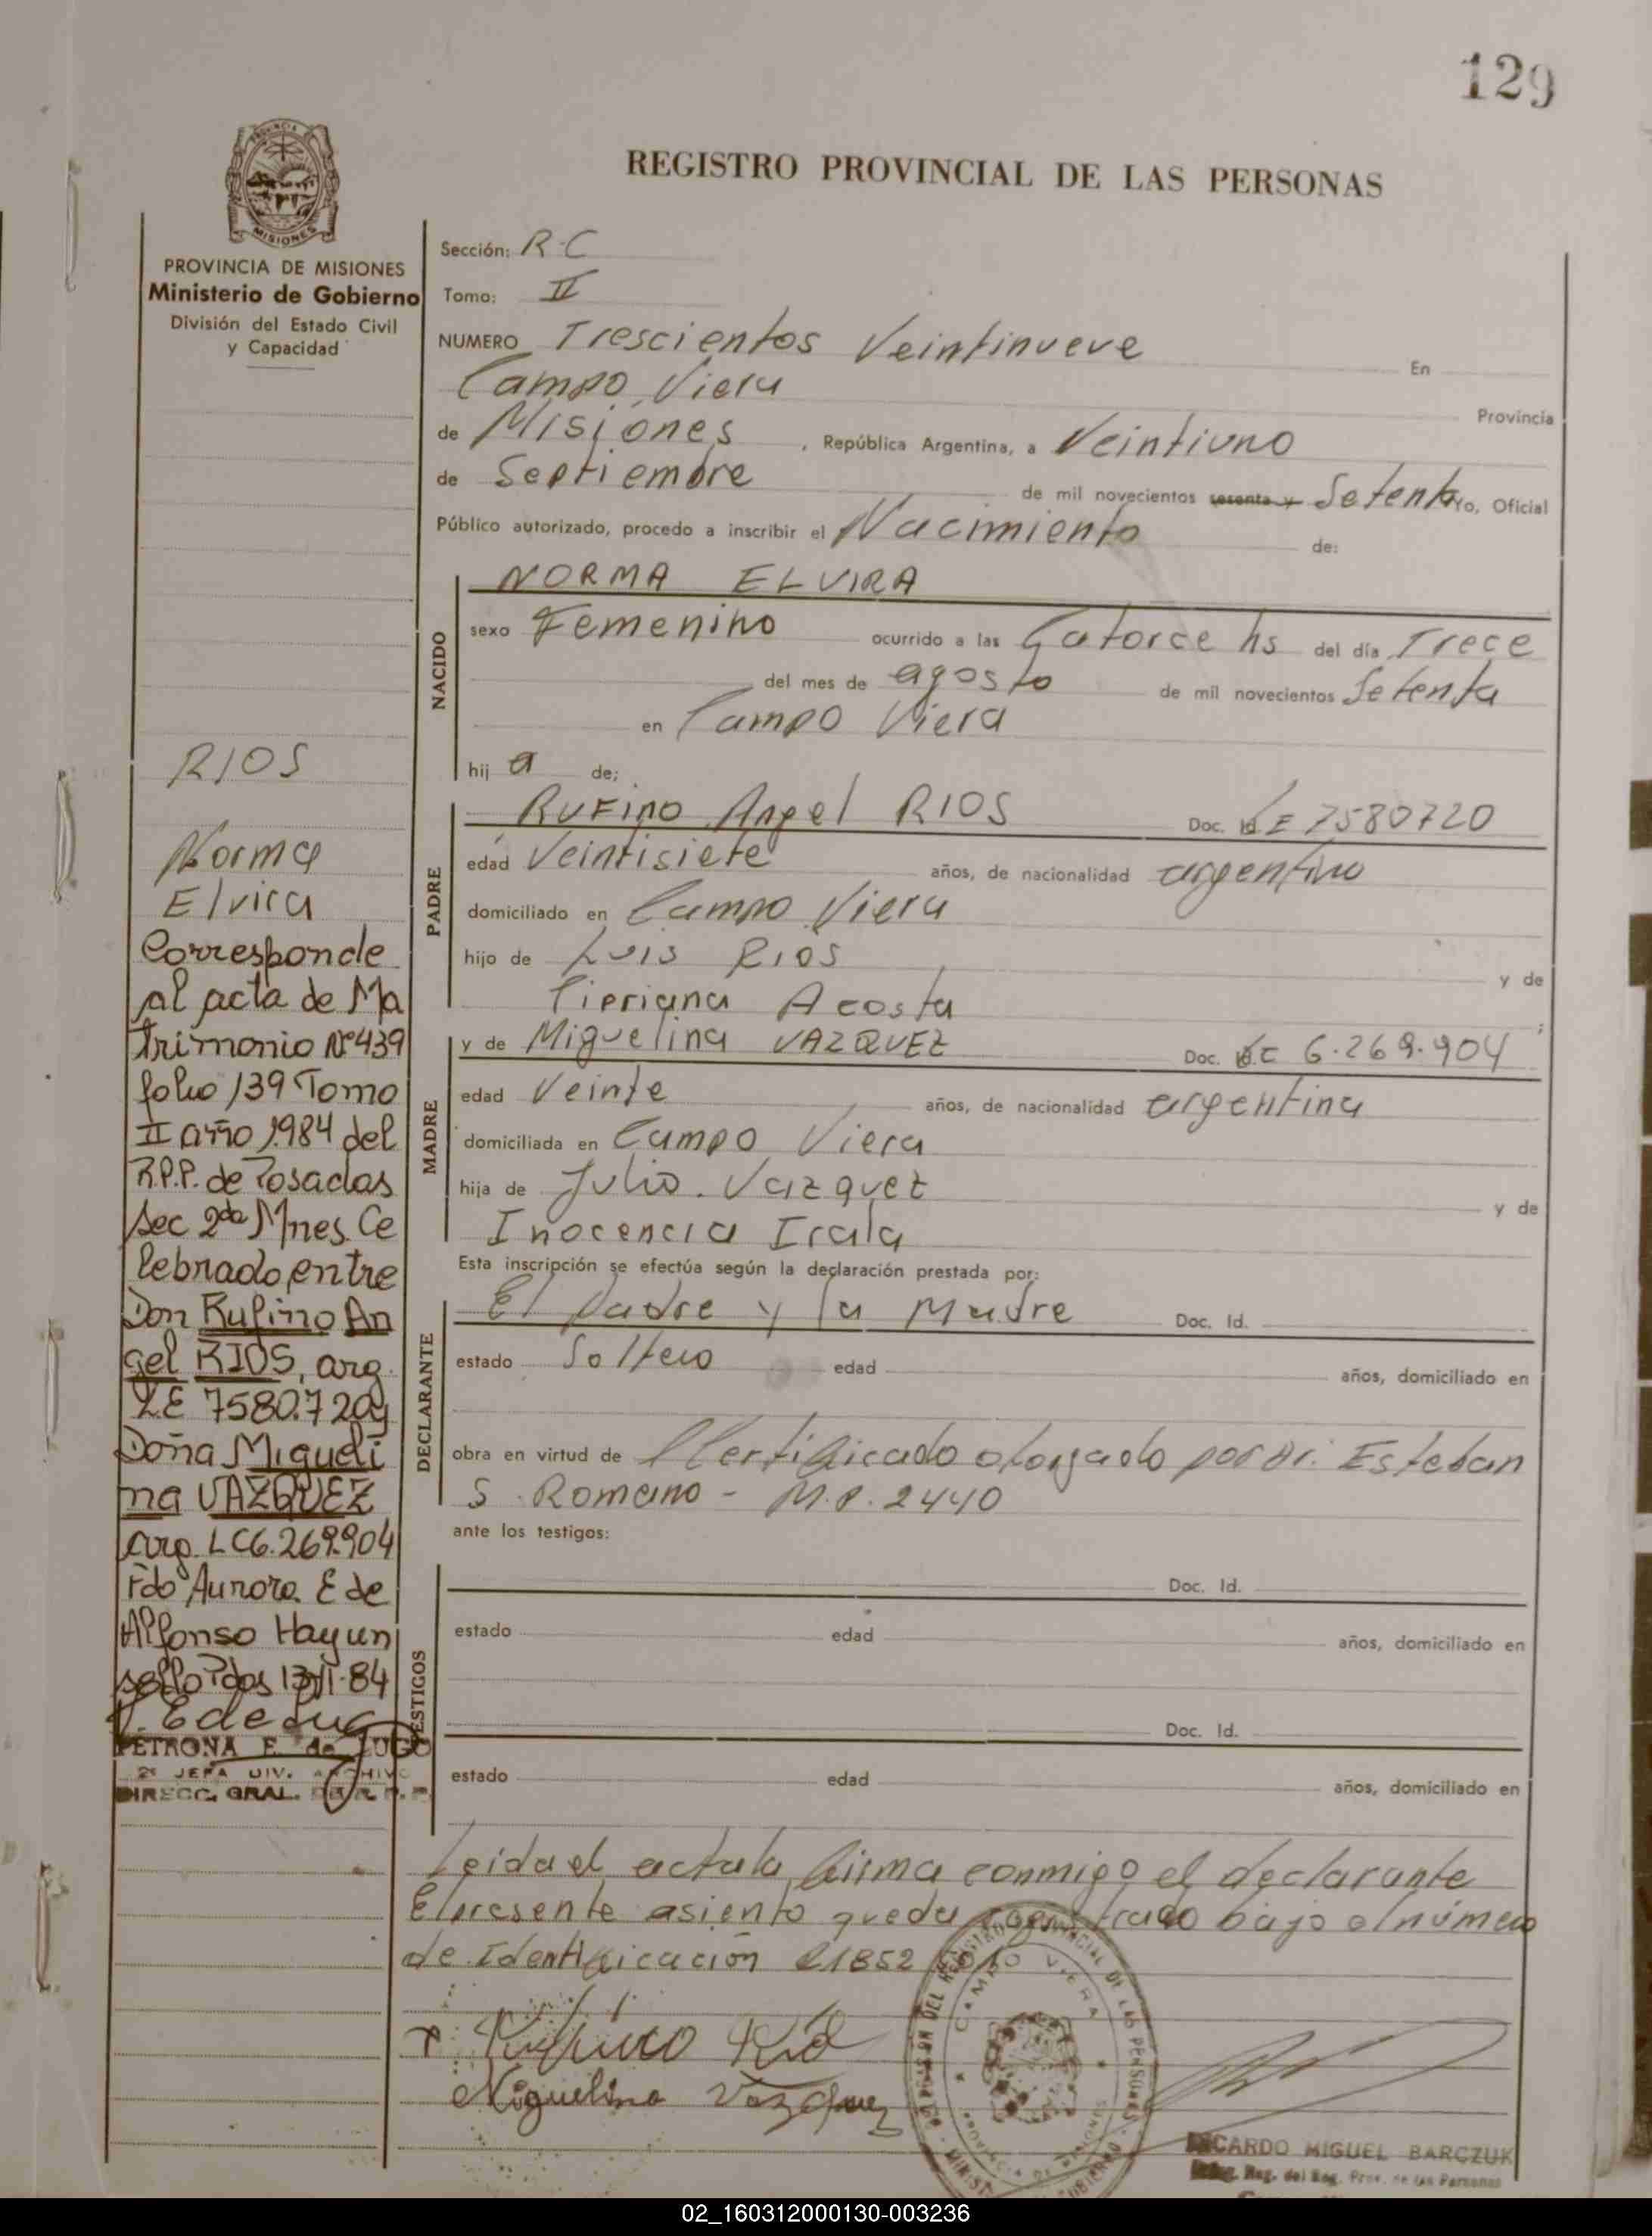 129
REGISTRO PROVINCIAL DE LAS PERSONAS
MISIONES
PROVINCIA DE MISIONES
Ministerio de Gobierno
División del Estado Civil
y Capacidad
Sección: R.C
Tomo: II
NUMERO Trescientos Veintinueve En
Campo Viera Provincia
de Misiones, República Argentina, a Veintiuno
de Septiembre de mil novecientos sesenta y Setenta yo, Oficial
Público autorizado, procedo a inscribir el Nacimiento de:
NACIDO
NORMA ELVIRA
sexo Femenino ocurrido a las Catorce hs del día Trece
del mes de agosto de mil novecientos Setenta
en Campo Viera
hij a de;
PADRE
RUFino Angel RIOS Doc. Id LE 7580720
edad Veintisiete años, de nacionalidad argentino
domiciliado en Campo Viera
hijo de Luis RIOS y de
Cipriana Acosta ;
MADRE
y de Miguelina VAZQUEZ Doc. LC 6.269.904
edad Veinte años, de nacionalidad argentina
domiciliada en Campo Viera
hija de Julio Vazquez y de
Inocencia Irala
Esta inscripción se efectúa según la declaración prestada por:
DECLARANTE
El Padre y la Madre Doc. Id.
estado Soltero edad años, domiciliado en
obra en virtud de Certificado otorgado por Dr. Esteban
S. Romano - M.P. 2440
ante los testigos:
TESTIGOS
Doc. Id.
estado edad años, domiciliado en
Doc. Id.
estado edad años, domiciliado en
Leida el acta la firma conmigo el declarante
El presente asiento queda registrado bajo el número
de Identificación 21852
Rufino Rios
Miguelina Vazquez
CAMPO VIERA
RICARDO MIGUEL BARCZUK
Reg. del Reg. Prov. de las Personas
RIOS
Norma
Elvira
Corresponde
al acta de Ma
trimonio Nº439
folio 139 Tomo
II año 1984 del
R.P.P. de Posadas
Sec 2da Mnes. Ce
lebrado entre
Don Rufino An
gel RIOS, arg.
LE 7580.720 y
Doña Migueli
na VAZQUEZ
arg. LC6.269.904
Fdo Aurora E de
Alfonso Hay un
sello Pdas 13-11-84
PETRONA E. de LUGO
2ª JEFA DIV. ARCHIVO
DIRECC. GRAL. DE R. P. P.
02_160312000130-003236